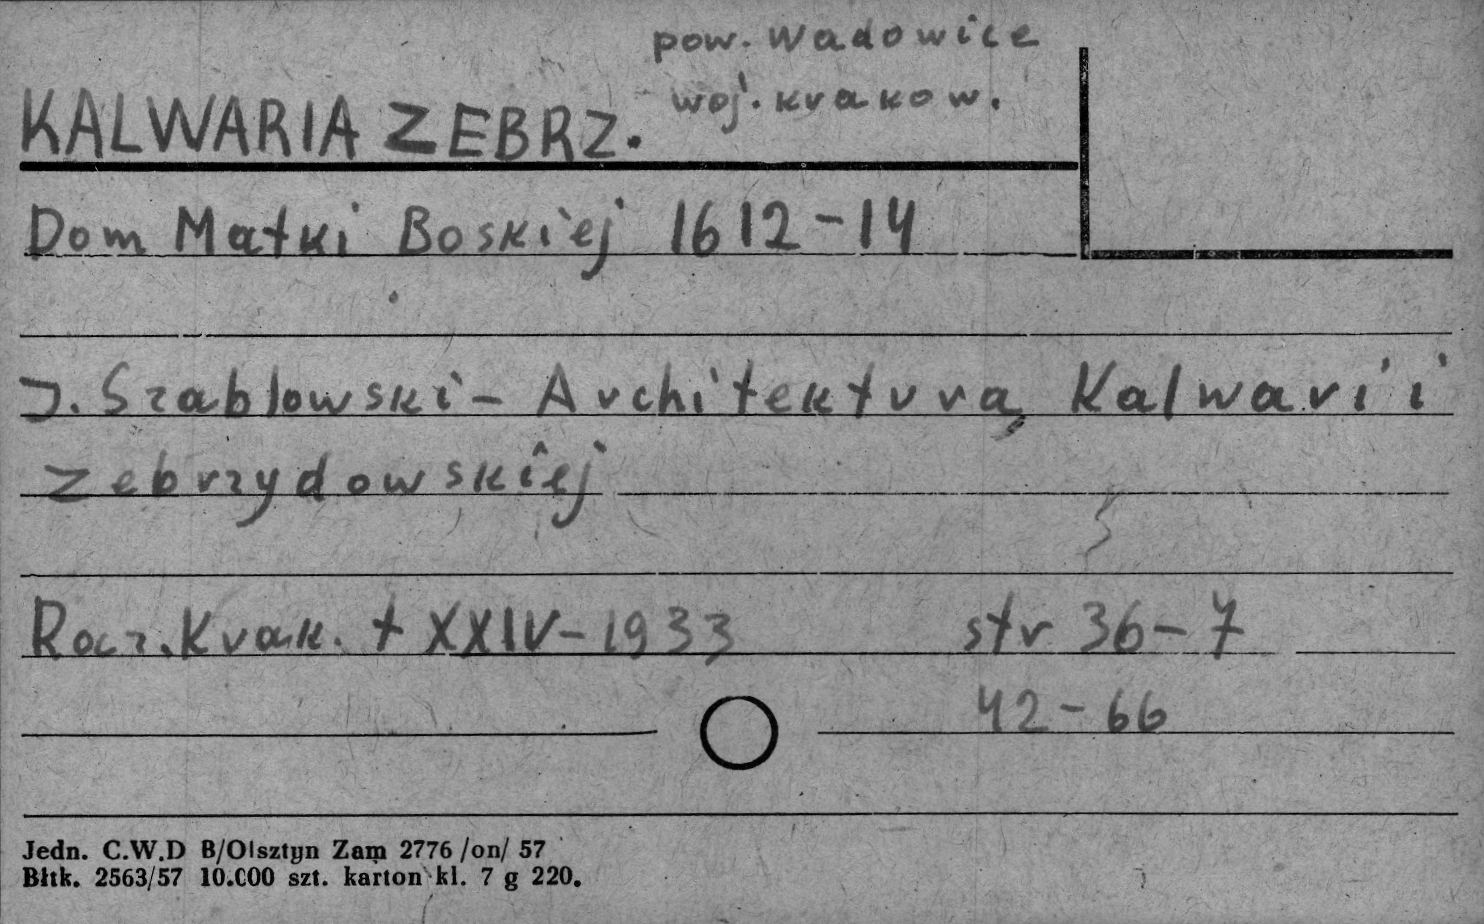 pow. Wadowice
woj. krakow.
KALWARIA ZEBRZ.
Dom Matki Boskiej 1612-14
J. Szablowski - Architektura Kalwarii
Zebrzydowskiej
Rocz. Krak. t XXIV-1933 str 36-7
42-66
Jedn. C.W.D B/Olsztyn Zam 2776 /on/ 57
Błtk. 2563/57 10.000 szt. karton kl. 7 g 220.